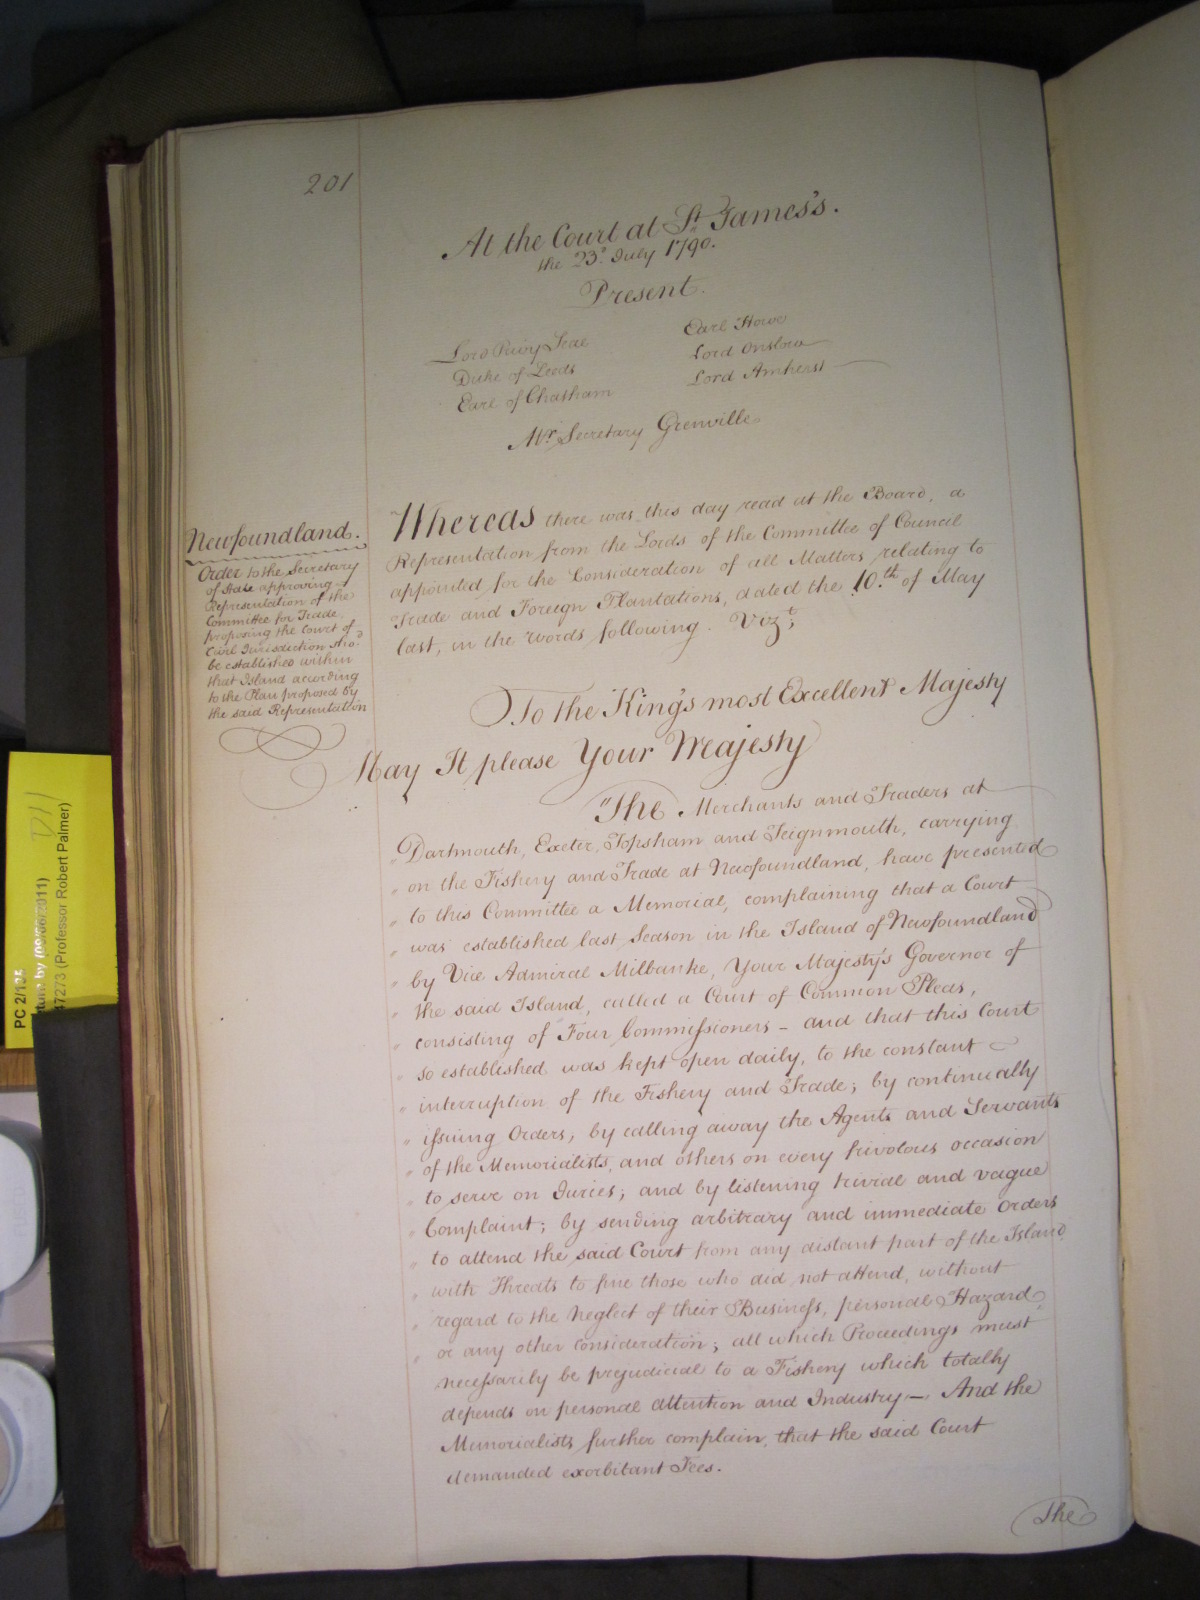 201
At the Court at St. James's.
the 23d. July 1790.
Present.
Lord Privy Seal
Duke of Leeds
Earl of Chatham
Earl Howe
Lord Onslow
Lord Amherst
Mr. Secretary Grenville
Newfoundland.
Order to the Secretary
of State approving a
Representation of the
Committee for Trade,
proposing the Court of
Civil Jurisdiction shod.
be established within
that Island acording
to the Plan proposed by
the said Representation
Whereas there was this day read at the Board, a
Representation from the Lords of the Committee of Council
appointed for the Consideration of all Matters relating to
Trade and Foreign Plantations, dated the 10.th of May
last, in the words following. Vizt;
To the King's most Excellent Majesty
May It please Your Majesty
"The Merchants and Traders at
" Dartmouth, Exeter, Topsham and Teignmouth, carrying
" on the Fishery and Trade at Newfoundland, have presented
" to this Committee a Memorial, complaining that a Court
" was established last Season in the Island of Newfoundland
" by Vice Admiral Milbanke, Your Majesty's Governor of
" the said Island, called a Court of Common Pleas,
" consisting of Four Commissioners – and that this Court
" so established was kept open daily, to the constant
" interruption of the Fishery and Trade; by continually
" issuing Orders, by calling away the Agents and Servants
" of the Memorialists, and others on every frivolous occasion
" to serve on Juries; and by listening trivial and vague
" Complaint; by sending arbitrary and immediate Orders
" to attend the said Court from any distant part of the Island
" with Threats to fine those who did not attend, without
" regard to the Neglect of their Business, personal Hazard,
" or any other Consideration; all which Proceedings must
necessarily be prejudicial to a Fishery which totally
depends on personal attention and Industry – And the
Memorialists further complain, that the said Court
demanded exorbitant Fees.
The
PC 2/135
(09/06/2011)
47273 (Professor Robert Palmer)
D11